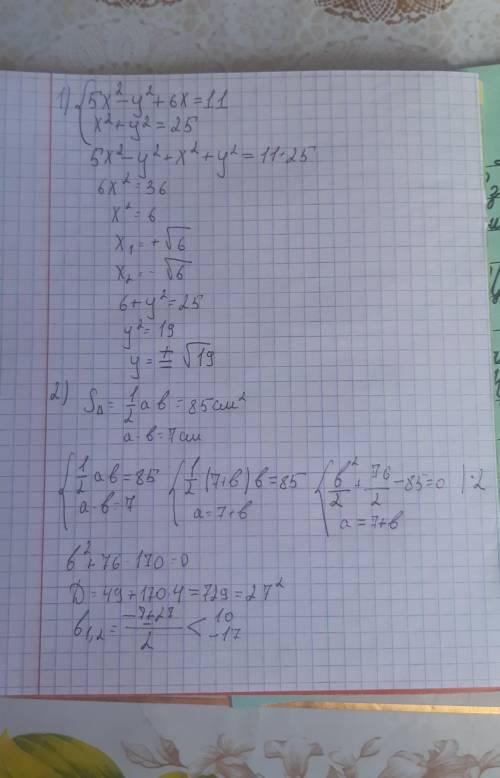 1) { 5x² - y² + 6x = 11
x² + y² = 25
5x² - y² + x² + y² = 11 + 25
6x² = 36
x² = 6
x₁ = +√6
x₂ = -√6
6 + y² = 25
y² = 19
y = ± √19
2) S△ = 1/2 ab = 85 см²
a - b = 7 см
{ 1/2 ab = 85 { 1/2 (7+b)b = 85 { b²/2 + 7b/2 - 85 = 0 | ·2
a - b = 7 a = 7 + b a = 7 + b
b² + 7b - 170 = 0
D = 49 + 170·4 = 729 = 27²
b₁,₂ = (-7±27)/2 < 10
-17